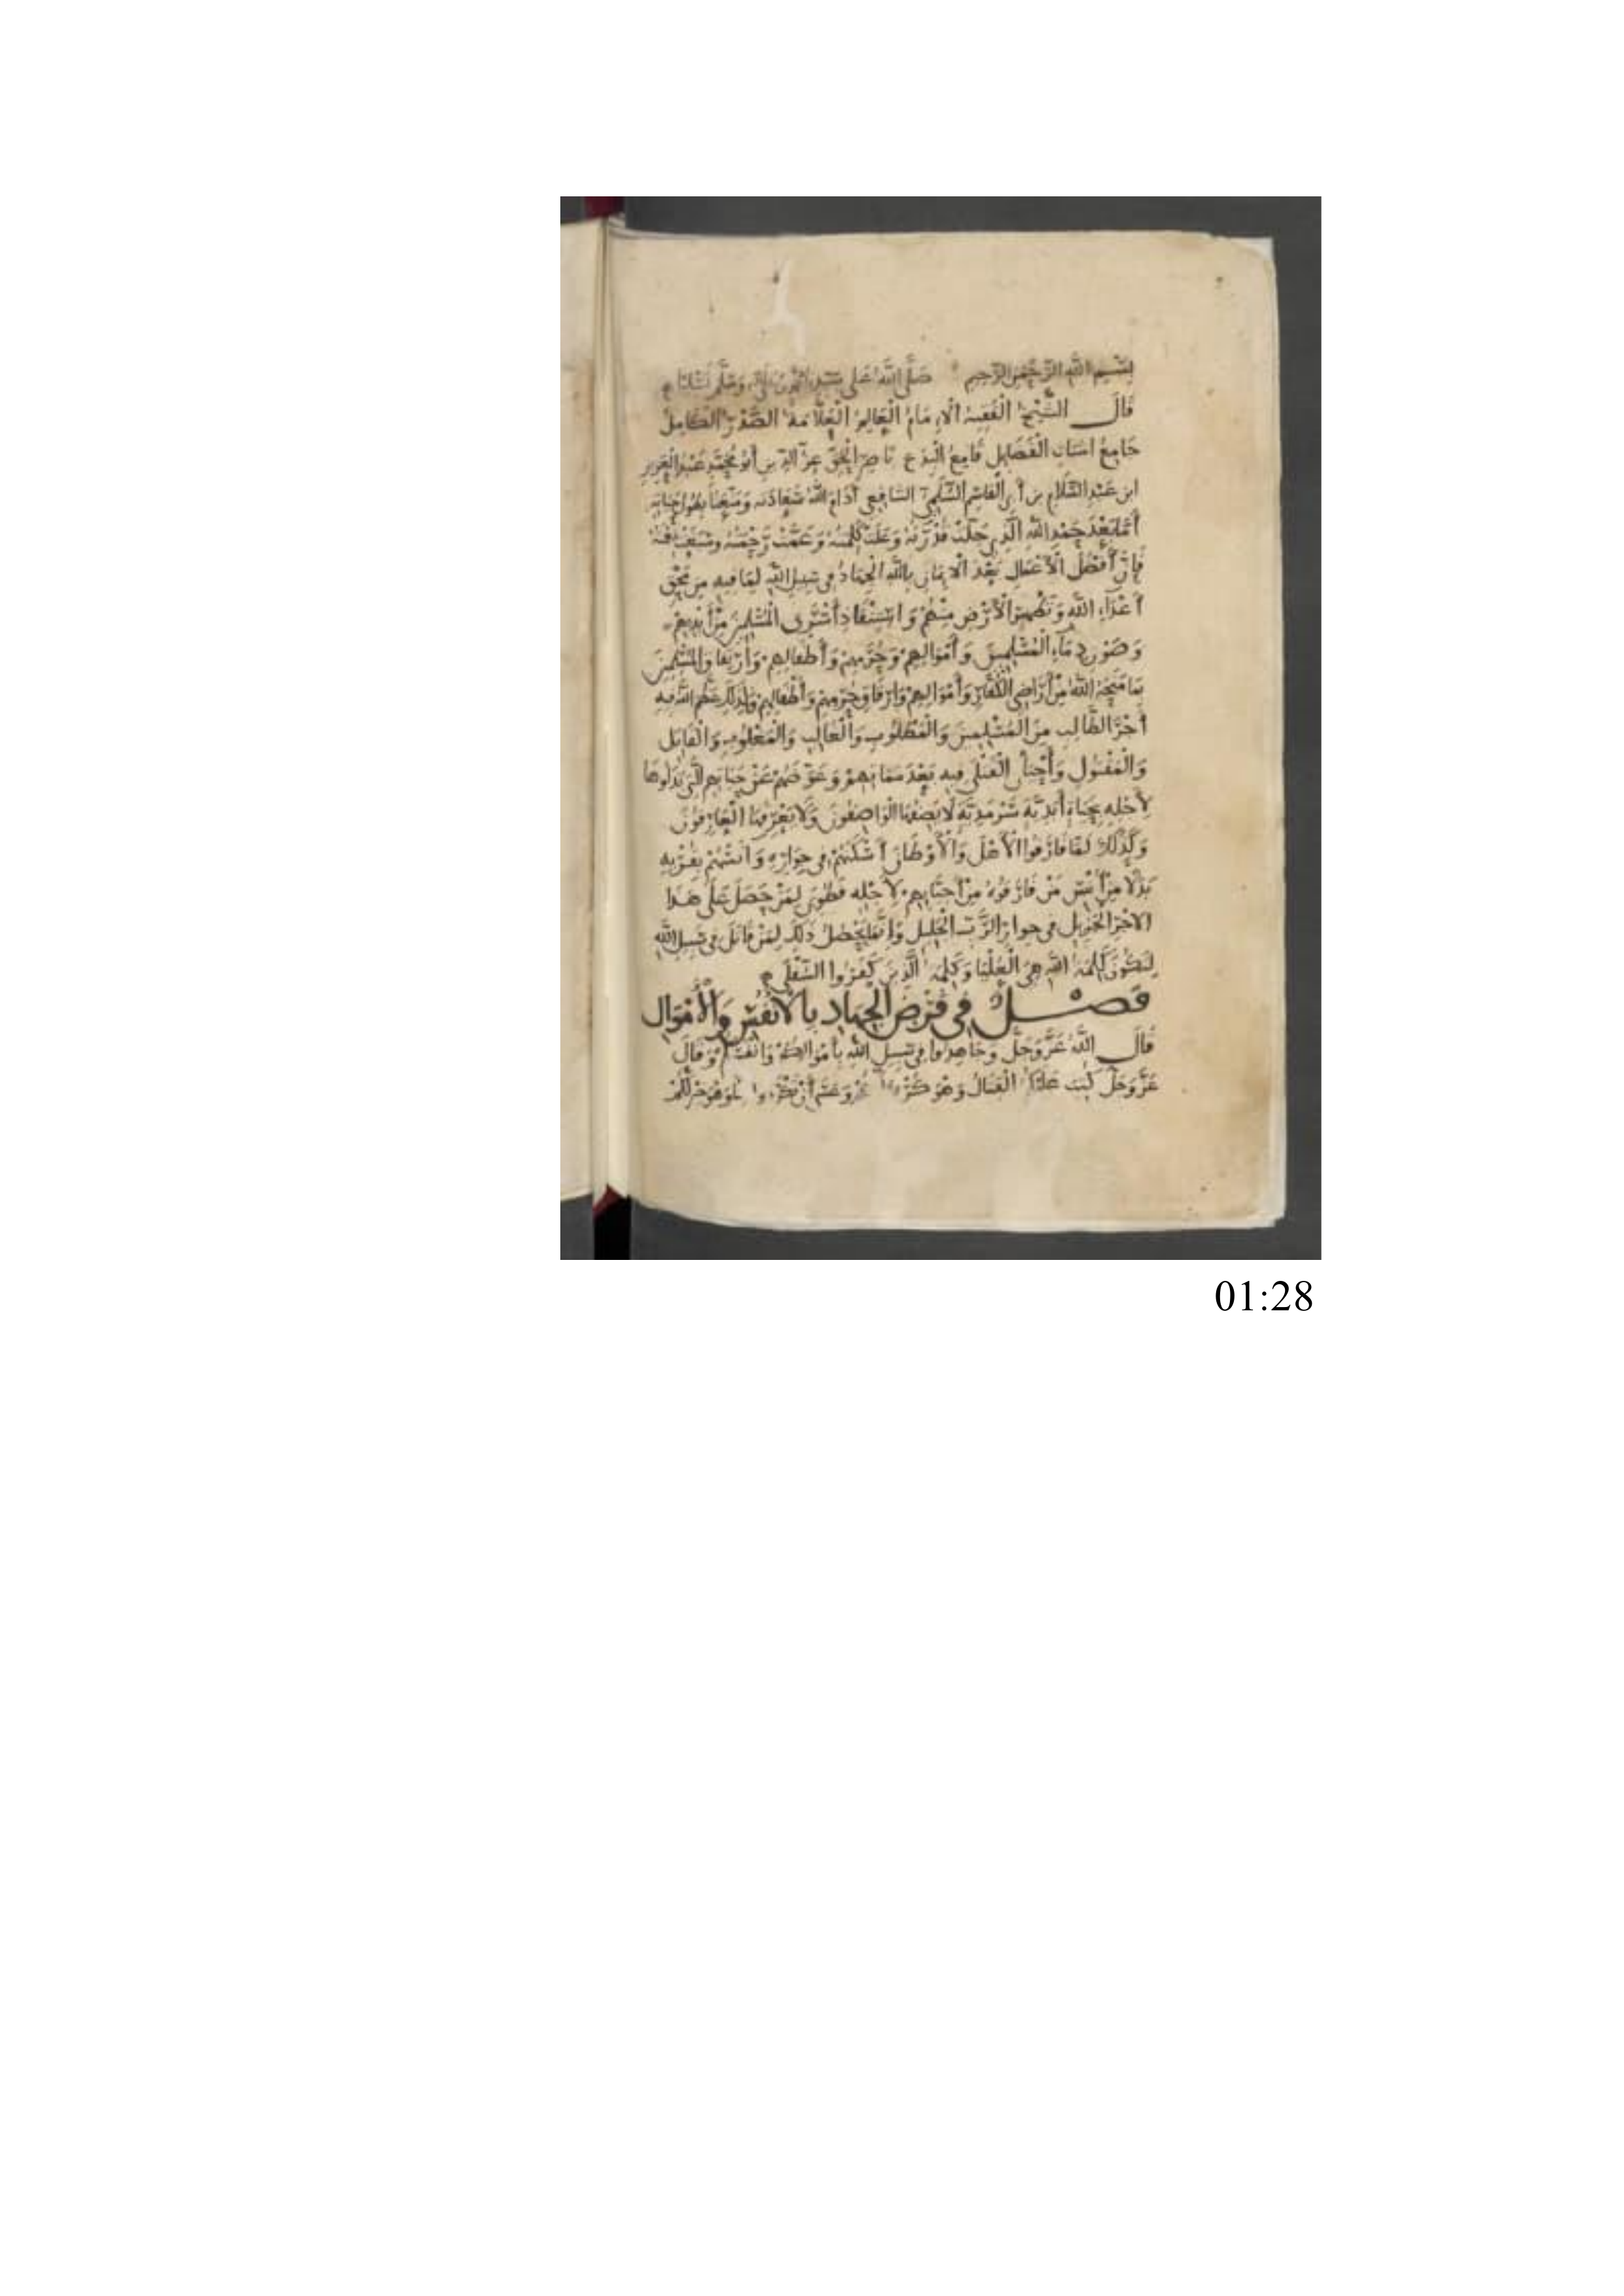 بِسْمِ اللَّهِ الرَّحْمَنِ الرَّحِيمِ صَلَّى اللَّهُ عَلَى وَسَلَّمَ
قَالَ الشَّيْخُ الْفَقِيهُ الْإِمَامُ الْعَالِمُ الْعَلَّامَةُ الصَّدْرُ الْكَامِلُ
جَامِعُ اشتات الْفَضَايِلِ قَامِعُ الْبِدَعِ نَاصِرُ الْحَقِّ عِزُّ الدِّينِ أَبُو مُحَمَّدٍ عَبْدُ الْعَزِيزِ
ابن عَبْدِ السَّلَامِ بن أَبِي الْقَاسِمِ السُّلَمِيُّ الشافِعِي أَدَامَ اللَّهُ سَعَادَته وَمَتَّعَنَا بِطُولِ حَيَاتِهِ
أَمَّا بَعْدَ حَمْدِ اللَّهِ الَّذِي جَلَّتْ قُدْرَتُهُ وَعَلَتْ كَلِمَتُهُ وَعَمَّتْ رَحْمَتُهُ
فَإِنَّ أَفْضَلَ الْأَعْمَالِ بَعْدَ الْإِيمَانِ بِاللَّهِ الْجِهَادُ فِي سَبِيلِ اللَّهِ لِمَا فِيهِ مِنْ مَحْقِ
أَعْدَاءِ اللَّهِ وَتَطْهِيرِ الْأَرْضِ مِنْهُمْ وَاسْتِنْقَاذِ أَسْرَى الْمُسْلِمِينَ مِنْ أَيْدِيهِمْ
وَصَوْنِ دِمَاءِ الْمُسْلِمِينَ وَأَمْوَالِهِمْ وَحُرَمِهِمْ وَأَطْفَالِهِمْ وَإِرْفَاقِ الْمُسْلِمِينَ
بِمَا مَنَحَهُ اللَّهُ مِنْ أَرَاضِي الْكُفَّارِ وَأَمْوَالِهِمْ وَإِرْقَاقِ حُرَمِهِمْ وَأَطْفَالِهِمْ وَلِذَلِكَ عَظَّمَ اللَّهُ فِيهِ
أَجْرَ الطَّالِبِ مِنَ الْمُسْلِمِينَ وَالْمَطْلُوبِ وَالْغَالِبِ وَالْمَغْلُوبِ وَالْقَاتِلِ
وَالْمَقْتُولِ وَأَحْيَا الْقَتْلَى فِيهِ بَعْدَ مَمَاتِهِمْ وَعَوَّضَهُمْ عَنْ حَيَاتِهِم الَّتِي بَذَلُوهَا
لِأَجْلِهِ بِحَيَاةٍ أَبَدِيَّةٍ سَرْمَدِيَّةٍ لَا يَصِفُهَا الْوَاصِفُونَ وَلَا يَعْرِفُهَا الْعَارِفُونَ
وَكَذَلِكَ لَمَّا فَارَقُوا الْأَهْلَ وَالْأَوْطَانَ أَسْكَنَهُمْ فِي جِوَارِهِ وَآنَسَهُمْ بِقُرْبِهِ
بَدَلًا مِنْ أُنْسِ مَنْ فَارَقُوهُ مِنْ أَحْبَابِهِمْ لِأَجْلِهِ فَطُوبَى لِمَنْ حَصَلَ عَلَى هَذَا
الْأَجْرِ الْجَزِيلِ فِي جِوَارِ الرَّبِّ الْجَلِيلِ وَإِنَّمَا يَحْصُلُ ذَلِكَ لِمَنْ قَاتَلَ فِي سَبِيلِ اللَّهِ
لِتَكُونَ كَلِمَةُ اللَّهِ هِيَ الْعُلْيَا وَكَلِمَةُ الَّذِينَ كَفَرُوا السُّفْلَى
فَصْلٌ فِي فَرْضِ الْجِهَادِ بِالْأَنْفُسِ وَالْأَمْوَالِ
قَالَ اللَّهُ عَزَّ وَجَلَّ وَجَاهِدُوا فِي سَبِيلِ اللَّهِ بِأَمْوَالِكُمْ وَأَنْفُسِكُمْ وَقَالَ
عَزَّ وَجَلَّ كُتِبَ عَلَيْكُمُ الْقِتَالُ وَهُوَ كُرْهٌ وَعَسَى أَنْ تَكْرَهُوا وَهُوَ خَيْرٌ لَكُمْ
01:28